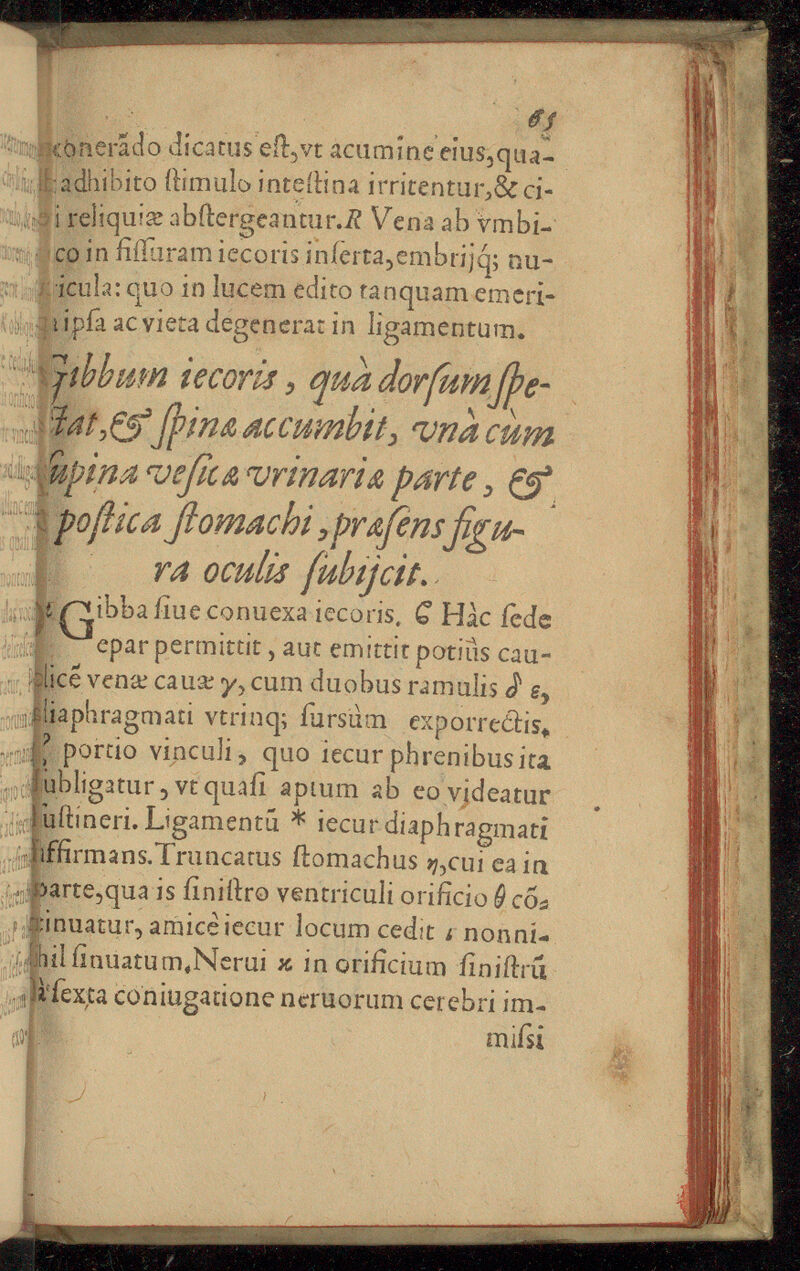 65
dicatus eſt,vt acumine eius,qua-
adhibito ſtimulo inteſtina irritentur,& ci-
reliquiæ abſtergeantur.R Vena ab vmbi-
co in fiſſuram iecoris inſerta,embrijq́; nu-
quo in lucem edito tanquam emeri-
ipſa ac vieta degenerat in ligamentum.
iecoris , quà dorſum ſpe-
& ſpinæ accumbit, vnà cùm
veſicæ vrinariæ parte , &
poſtica ſtomachi ,præſens figu-
ra oculis ſubijcit.
Gibba ſiue conuexa iecoris, C Hàc ſede
epar permittit , aut emittit potiùs cau-
venæ cauæ γ, cum duobus ramulis δ ε,
diaphragmati vtrinq; ſursùm exporrectis,
portio vinculi, quo iecur phrenibus ita
ſubligatur , vt quaſi aptum ab eo videatur
ſuſtineri. Ligamentū * iecur diaphragmati
Truncatus ſtomachus η,cui ea in
parte,qua is ſiniſtro ventriculi orificio θ cō-
tinuatur, amicè iecur locum cedit ς nonni-
hil ſinuatum,Nerui κ in orificium ſiniſtrū
ſexta coniugatione neruorum cerebri im-
miſsi